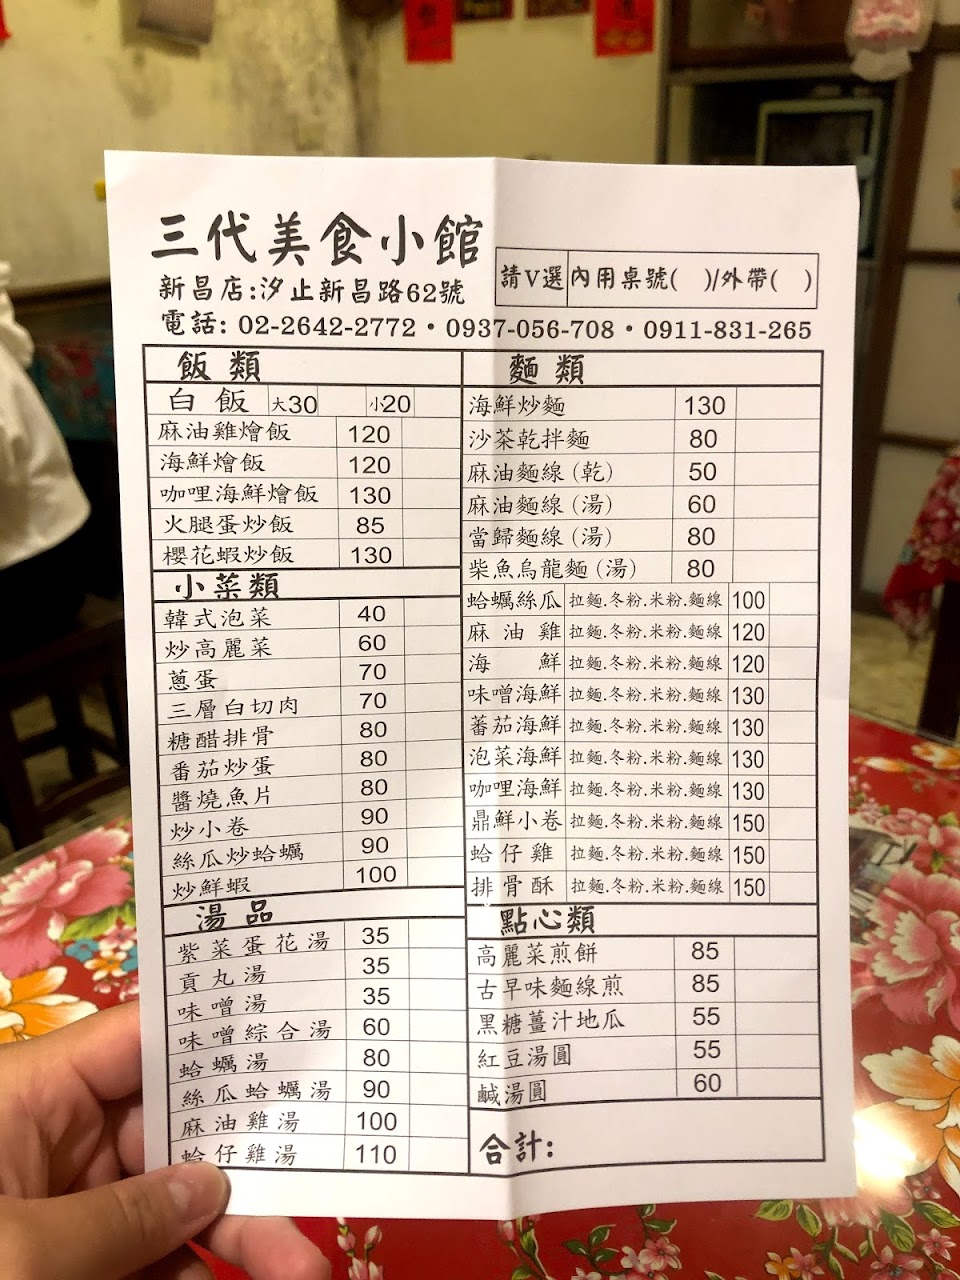 三代美食小館
新昌店:汐止新昌路62號
請V選 內用桌號( )/外帶( )
電話: 02-2642-2772・0937-056-708・0911-831-265
飯類
白飯 大30 小20
麻油雞燴飯 120
海鮮燴飯 120
咖哩海鮮燴飯 130
火腿蛋炒飯 85
櫻花蝦炒飯 130
小菜類
韓式泡菜 40
炒高麗菜 60
蔥蛋 70
三層白切肉 70
糖醋排骨 80
番茄炒蛋 80
醬燒魚片 80
炒小卷 90
絲瓜炒蛤蠣 90
炒鮮蝦 100
湯品
紫菜蛋花湯 35
貢丸湯 35
味噌湯 35
味噌綜合湯 60
蛤蠣湯 80
絲瓜蛤蠣湯 90
麻油雞湯 100
蛤仔雞湯 110
麵類
海鮮炒麵 130
沙茶乾拌麵 80
麻油麵線(乾) 50
麻油麵線(湯) 60
當歸麵線(湯) 80
柴魚烏龍麵(湯) 80
蛤蠣絲瓜 拉麵.冬粉.米粉.麵線 100
麻油雞 拉麵.冬粉.米粉.麵線 120
海鮮 拉麵.冬粉.米粉.麵線 120
味噌海鮮 拉麵.冬粉.米粉.麵線 130
蕃茄海鮮 拉麵.冬粉.米粉.麵線 130
泡菜海鮮 拉麵.冬粉.米粉.麵線 130
咖哩海鮮 拉麵.冬粉.米粉.麵線 130
鼎鮮小卷 拉麵.冬粉.米粉.麵線 150
蛤仔雞 拉麵.冬粉.米粉.麵線 150
排骨酥 拉麵.冬粉.米粉.麵線 150
點心類
高麗菜煎餅 85
古早味麵線煎 85
黑糖薑汁地瓜 55
紅豆湯圓 55
鹹湯圓 60
合計: